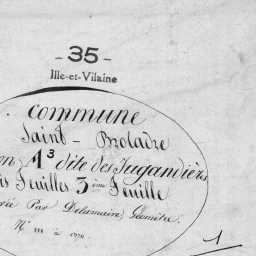 - 35 -
Ille-et-Vilaine
Commune
Saint - Broladre
on A 3 dite des Jugandières
is Feuilles 3ème Feuille
Par Delamaire Géomètre.
1